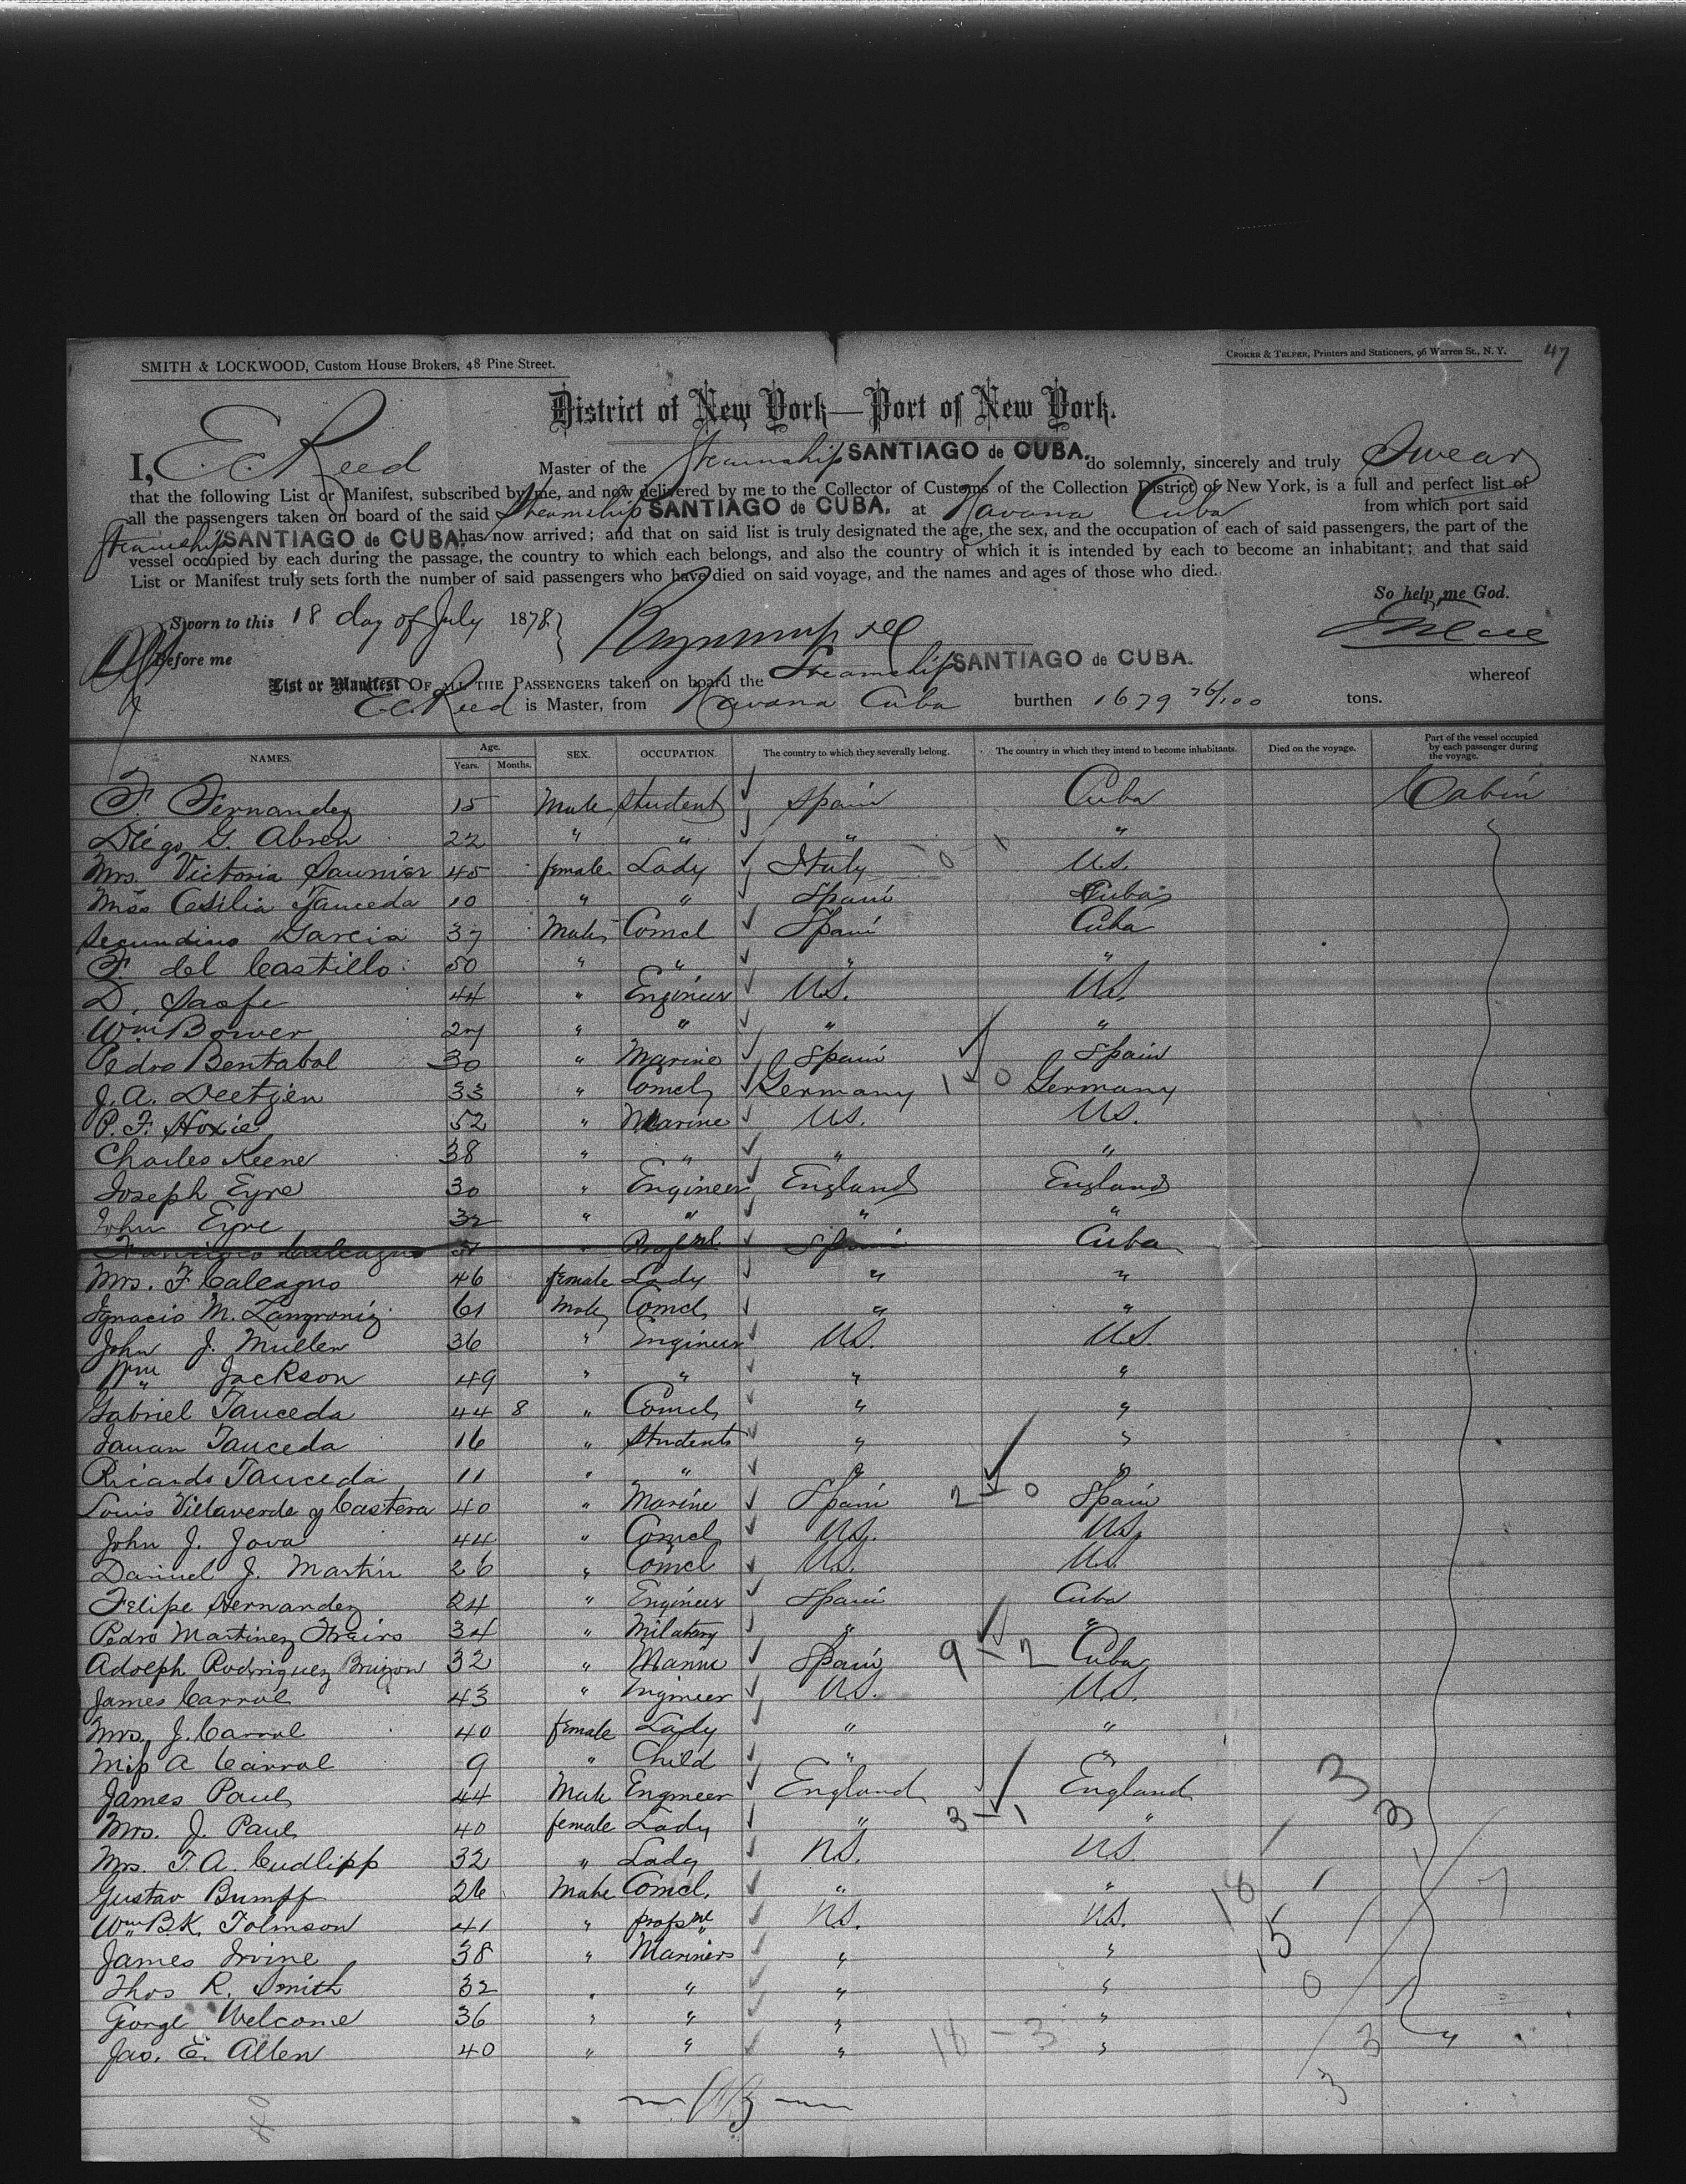 SMITH & LOCKWOOD, Custom House Brokers, 48 Pine Street.
CROKER & TELFER, Printers and Stationers, 96 Warren St., N. Y. 47
District of New York—Port of New York.
I, E. C. Reed Master of the Steamship SANTIAGO de CUBA. do solemnly, sincerely and truly Swear
that the following List or Manifest, subscribed by me, and now delivered by me to the Collector of Customs of the Collection District of New York, is a full and perfect list of
all the passengers taken on board of the said Steamship SANTIAGO de CUBA. at Havana Cuba from which port said
Steamship SANTIAGO de CUBA. has now arrived; and that on said list is truly designated the age, the sex, and the occupation of each of said passengers, the part of the
vessel occupied by each during the passage, the country to which each belongs, and also the country of which it is intended by each to become an inhabitant; and that said
List or Manifest truly sets forth the number of said passengers who have died on said voyage, and the names and ages of those who died.
So help me God.
Sworn to this 18 day of July 1878
Before me
List or Manifest OF ALL THE PASSENGERS taken on board the Steamship SANTIAGO de CUBA. whereof
E. C. Reed is Master, from Havana Cuba burthen 1679 76/100 tons.
NAMES. Age. Years. Months. SEX. OCCUPATION. The country to which they severally belong. The country in which they intend to become inhabitants. Died on the voyage. Part of the vessel occupied by each passenger during the voyage.
F. Fernandez 15 Male Student Spain Cuba Cabin
Diego G. Abreu 22 " " " "
Mrs. Victoria Saunier 45 female Lady Italy U.S.
Miss Cesilia Tauceda 10 " " Spain Cuba
Secundino Garcia 37 Male Comcl Spain Cuba
F. del Castillo 50 " " " "
D. 44 " Engineer U.S. U.S.
Wm Bower 27 " " " "
Pedro Bentabol 30 " Marine Spain Spain
J. A. Deetjen 33 " Comcl Germany 1 - 0 Germany
P. F. Hoxie 52 " Marine U.S. U.S.
Charles Keene 38 " " " "
Joseph Eyre 30 " Engineer England England
John Eyre 32 " " " "
Francisco Calcagno " Spain Cuba
Mrs. F Calcagno 46 female Lady " "
Ignacio M. Zangroniz 61 Male Comcl " "
John J. Mullen 36 " Engineer U.S. U.S.
Wm Jackson 49 " " " "
Gabriel Tauceda 44 8 " Comcl " "
Jauan Tauceda 16 " Students " "
Ricardo Tauceda 11 " " " "
Louis Villaverde y Castera 40 " Marine Spain 2 - 0 Spain
John J. Jova 44 " Comcl U.S. U.S.
Daniuel J. Martin 26 " Comcl U.S. U.S.
Felipe Hernandez 24 " Engineer Spain Cuba
Pedro Martinez 34 " Military " "
Adolph Rodriguez Bruzon 32 " Marine Spain 9 - 2 Cuba
James Carrol 43 " Engineer U.S. U.S.
Mrs. J. Carrol 40 female Lady " "
Miss A Carrol 9 " Child " "
James Paul 44 Male Engineer England England 3
Mrs. J. Paul 40 female Lady " 3 - 1 "
Mrs. T. A. Cudlipp 32 " Lady U.S. U.S.
Gustav Bumpf 26 Male Comcl. " "
Wm B.K. Tolmson 41 " U.S. U.S.
James Irvine 38 " Mariners " "
Thos R. Smith 32 " " " "
George Welcome 36 " " " "
Jas. E. Allen 40 " " " 18 - 3 " "